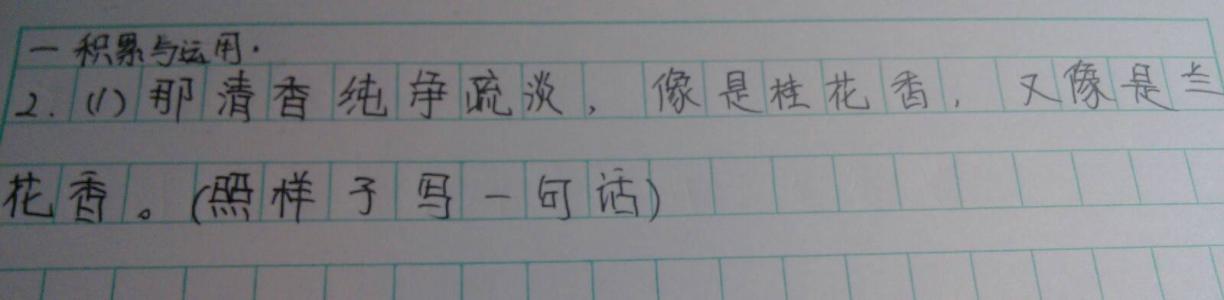 一 积累与运用.
2. (1) 那清香纯净疏淡, 像是桂花香, 又像是兰
花香。(照样子写一句话)